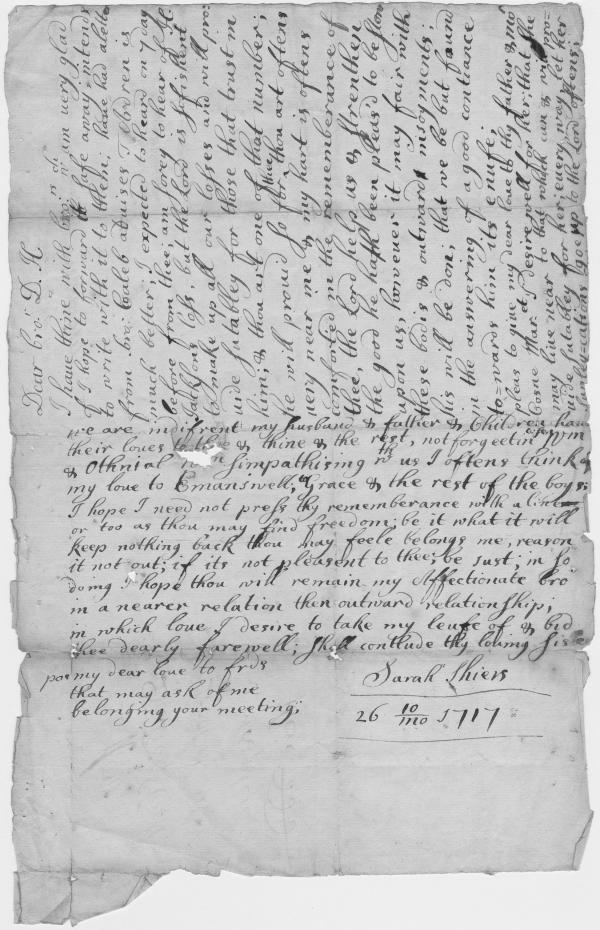 Dear bro: D. H
I haue thine with bro: am very glad
I hope to forward it safe away; intends
to write with it to them; haue had a lette
from bro: Caleb aduises Children is
much better; I expected to heard on 7 day
before from thee; am sorey to hear of
loss, but the Lord is sifishant
to make up all our losses and will pro:
uide sutabley for those that trust in
him; & thou art one of that number;
he will prouid so for thee thou art oftens
uery near me & my hart is oftens
comforted in the rememberance of
thee, the Lord help us & strenthen
the good he hath been pleas'd to bestow
upon us, however it may fair with
these bodis & outward injoyments;
his will be don; that we be but found
in the answering of a good contiance
to=wards him its enufe;
pleas to giue my dear loue to thy father & mo
Mar: I desire well for her; that she
may liue near to that which can & will pro=
uide sutabley for her euery way; let her
goe up to the Lord oftens;
we are indifrent my husband & father & Children haue
their loues to thee & thine & the rest, not forgeetin
& Othnial simpathising with us I oftens think of
my love to Emanswell, Grace & the rest of the boys:
I hope I need not press thy rememberance with a line
or too as thou may find freedom; be it what it will
keep nothing back thou may feele belongs me, reason
it not out; if its not pleasent to thee; be just; in so
doing I hope thou will remain my Affectionate bro
in a nearer relation then outward relationship;
in which love I desire to take my leufe of & bid
thee dearly farewell; Shall conclude thy louing Sis
Sarah Shiers
26 10/mo 1717
pos my dear love to frds
that may ask of me
belonging your meeting;